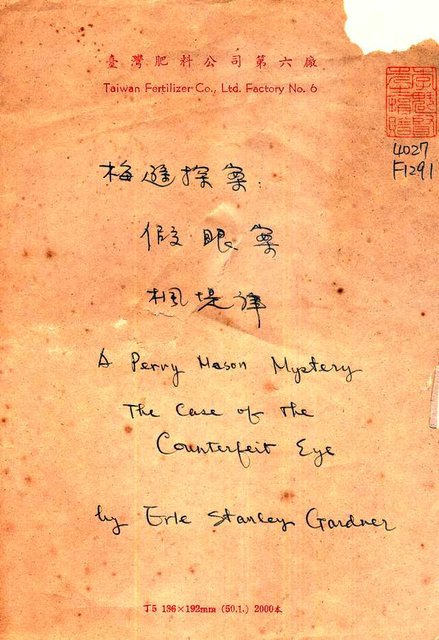 臺灣肥料公司第六廠
Taiwan Fertilizer Co., Ltd. Factory No. 6
4027
F1291
梅遜探案:
假眼案
楓堤譯
A Perry Mason Mystery
The Case of the
Counterfeit Eye
by Erle Stanley Gardner
T5 136×192mm (50.1.) 2000本